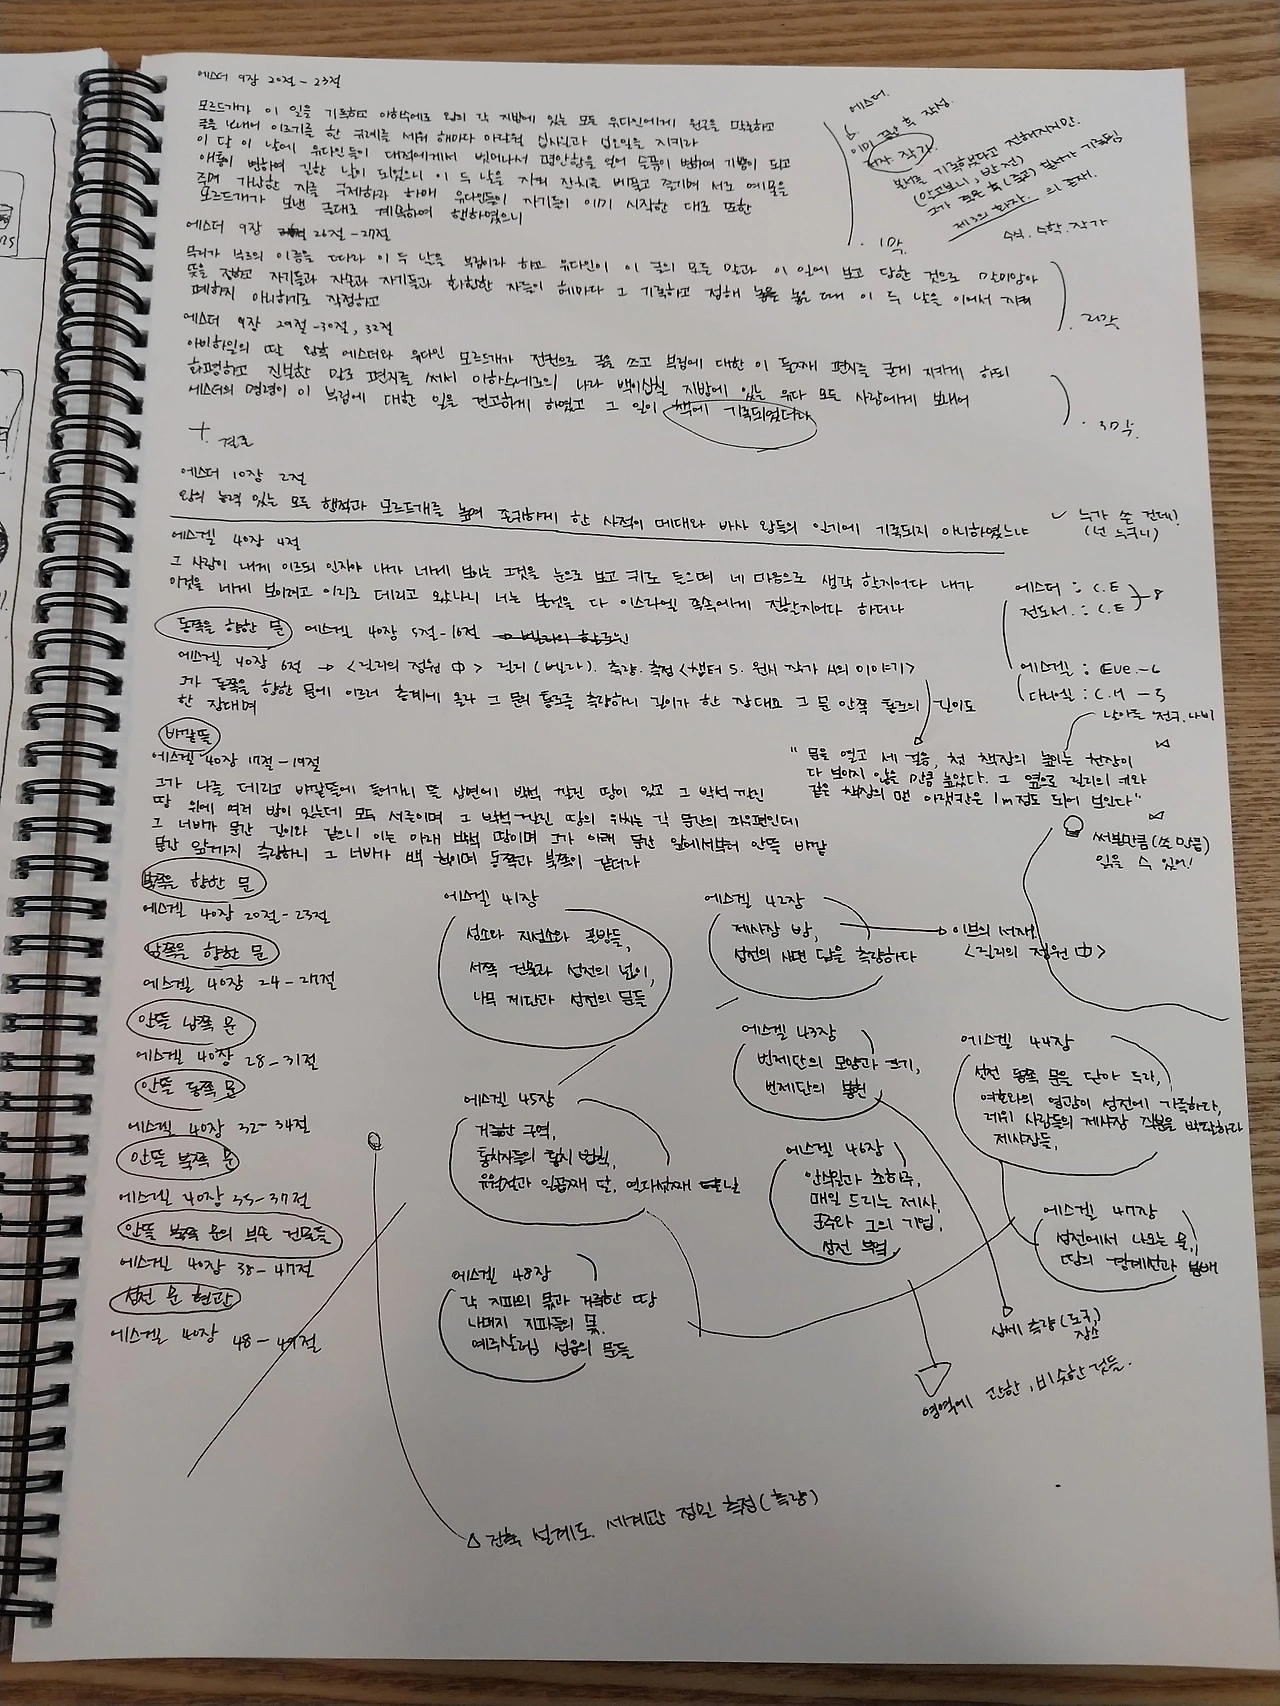 에스더 9장 20절 - 23절
모르드개가 이 일을 기록하고 아하수에로 왕의 각 지방에 있는 모든 유다인에게 원근을 막론하고
글을 보내어 이르기를 한 규례를 세워 해마다 아달월 십사일과 십오일을 지키라
이 달 이 날에 유다인들이 대적에게서 벗어나서 평안함을 얻어 슬픔이 변하여 기쁨이 되고
애통이 변하여 길한 날이 되었으니 이 두 날을 지켜 잔치를 베풀고 즐기며 서로 예물을
주며 가난한 자를 구제하라 하매 유다인들이 자기들이 이미 시작한 대로 또한
모르드개가 보낸 글대로 계속하여 행하였으니
에스더.
6.
이미 후 작성.
저자. 작가.
기록하였다고 전해지지만.
(알고보니, 반전)
제 3의 화자. 의 존재.
수식. 수학. 작가
. 1막
에스더 9장 26절 - 27절
무리가 부르의 이름을 따라 이 두 날을 부림이라 하고 유다인이 이 글의 모든 말과 이 일에 보고 당한 것으로 말미암아
뜻을 정하고 자기들과 자손과 자기들과 화합한 자들이 해마다 그 기록하고 정해 놓은 때 이 두 날을 이어서 지켜
폐하지 아니하기로 작정하고
. 2막
에스더 9장 29절 - 30절, 32절
아비하일의 딸 왕후 에스더와 유다인 모르드개가 전권으로 글을 쓰고 부림에 대한 이 둘째 편지를 굳게 지키게 하되
화평하고 진실한 말로 편지를 써서 아하수에로의 나라 백이십칠 지방에 있는 유다 모든 사람에게 보내어
에스더의 명령이 이 부림에 대한 일을 견고하게 하였고 그 일이 책에 기록되었더라
. 3막.
+ 결론
에스더 10장 2절
왕의 능력 있는 모든 행적과 모르드개를 높여 존귀하게 한 사적이 메대와 바사 왕들의 일기에 기록되지 아니하였느냐
✓ 누가 쓴 건데!
(넌 누구니)
에스겔 40장 4절
그 사람이 내게 이르되 인자야 내가 네게 보이는 그것을 눈으로 보고 귀로 들으며 네 마음으로 생각 할지어다 내가
이것을 네게 보이려고 이리로 데리고 왔나니 너는 본것을 다 이스라엘 족속에게 전할지어다 하더라
에스더 : C.E
전도서 : C.E
8
에스겔 : Eve. - 6
다니엘 : C.H - 5
동쪽을 향한 문 에스겔 40장 5절 - 16절
에스겔 40장 6절 → <릴리의 정원 中> 릴리 (벨라). 측량. 측정 <챕터 5. 원시 작가 씨의 이야기>
그가 동쪽을 향한 문에 이르러 층계에 올라 그 문의 통로를 측량하니 길이가 한 장대요 그 문 안쪽 통로의 길이도
한 장대며
바깥뜰
에스겔 40장 17절 - 19절
그가 나를 데리고 바깥뜰에 들어가니 뜰 삼면에 박석 깔린 땅이 있고 그 박석 깔린
땅 위에 여러 방이 있는데 모두 서른이며 그 박석 깔린 땅의 위치는 각 문간의 좌우편인데
그 너비가 문간 길이와 같으니 이는 아래 박석 땅이며 그가 아래 문간 앞에서부터 안뜰 바깥
문간 앞까지 측량하니 그 너비가 백 척이며 동쪽과 북쪽이 같더라
" 문을 열고 세 걸음, 첫 책장의 높이는 천장이
다 보이지 않을 만큼 높았다. 그 옆으로 릴리의 키와
같은 책장의 맨 아랫칸은 1m정도 되어 보인다"
써본만큼 (쓴 만큼)
읽을 수 있어!
북쪽을 향한 문
에스겔 40장 20절 - 23절
남쪽을 향한 문
에스겔 40장 24 - 27절
안뜰 남쪽 문
에스겔 40장 28 - 31절
안뜰 동쪽 문
에스겔 40장 32 - 34절
안뜰 북쪽 문
에스겔 40장 35 - 37절
안뜰 북쪽 문의 부속 건물들
에스겔 40장 38 - 47절
성전 문 현관
에스겔 40장 48 - 49절
에스겔 41장
성소와 지성소와 골방들,
서쪽 건물과 성전의 넓이,
나무 제단과 성전의 문들
에스겔 42장
제사장 방,
성전의 사면 담을 측량하다
이브의 서재,
<릴리의 정원 中>
에스겔 43장
번제단의 모양과 크기,
번제단의 봉헌
에스겔 44장
성전 동쪽 문을 닫아 두라,
여호와의 영광이 성전에 가득하다,
레위 사람들의 제사장 직분을 박탈하다
제사장들,
에스겔 45장
거룩한 구역,
통치자들의 통치 법칙,
유월절과 일곱째 달, 열다섯째 날
에스겔 46장
안식일과 초하루,
매일 드리는 제사,
군주와 그의 기업,
성전 부엌
에스겔 47장
성전에서 나오는 물,
땅의 경계선과 분배
에스겔 48장
각 지파의 몫과 거룩한 땅
나머지 지파들의 몫,
예루살렘 성읍의 문들
상세 측량 (도구,
장소
영역에 관한, 비슷한 것들.
건축 설계도. 세계관 정밀 측정 (측량)